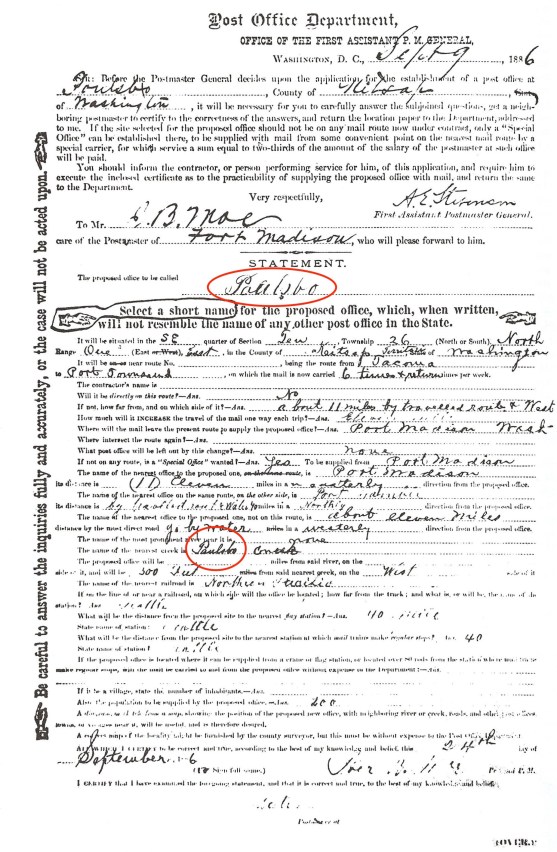 Post Office Department,
OFFICE OF THE FIRST ASSISTANT P. M. GENERAL,
WASHINGTON, D. C., Sept 9, 1886
SIR: Before the Postmaster General decides upon the application for the establishment of a post office at
Poulsbo, County of Kitsap,
of Washington, it will be necessary for you to carefully answer the subjoined questions, get a neigh-
boring postmaster to certify to the correctness of the answers, and return the location paper to the Department, addressed
to me. If the site selected for the proposed office should not be on any mail route now under contract, only a "Special
Office" can be established there, to be supplied with mail from some convenient point on the nearest mail route by a
special carrier, for which service a sum equal to two-thirds of the amount of the salary of the postmaster at such office
will be paid.
You should inform the contractor, or person performing service for him, of this application, and require him to
execute the inclosed certificate as to the practicability of supplying the proposed office with mail, and return the same
to the Department.
Very respectfully,
A. E. Stevenson
First Assistant Postmaster General.
To Mr. B. Moe
care of the Postmaster of Port Madison, who will please forward to him.
STATEMENT.
The proposed office to be called Paulsbo
Select a short name for the proposed office, which, when written,
will not resemble the name of any other post office in the State.
Be careful to answer the inquiries fully and accurately, or the case will not be acted upon.
It will be situated in the S E quarter of Section Ten, Township 26 (North or South), North
Range One (East or West), East, in the County of Kitsap, Territory of Washington
It will be on or near route No. , being the route from Tacoma
to Port Townsend, on which the mail is now carried 6 times & return times per week.
The contractor's name is
Will it be directly on this route?—Ans. No
If not, how far from, and on which side of it?—Ans. about 11 miles by travelled route & West
How much will it INCREASE the travel of the mail one way each trip?—Ans.
Where will the mail leave the present route to supply the proposed office?—Ans. Port Madison Wash
Where intersect the route again?—Ans.
What post office will be left out by this change?—Ans. none
If not on any route, is a "Special Office" wanted?—Ans. Yea To be supplied from Port Madison
The name of the nearest office to the proposed one, is Port Madison
Its distance is (11) Eleven miles in a direction from the proposed office.
The name of the nearest office on the same route, on the other side, is
Its distance is by miles in a Northly direction from the proposed office.
The name of the nearest office to the proposed one, not on this route, is about eleven Miles
distance by the most direct road by water miles in a westerly direction from the proposed office.
The name of the most prominent river near it is none
The name of the nearest creek is Paulsbo Creek
The proposed office will be miles from said river, on the
side of it, and will be 300 Feet miles from said nearest creek, on the West side of it
The name of the nearest railroad is Northern Pacific
If on the line of or near a railroad, on which side will the office be located; how far from the track; and what is, or will be, the name of the
station?—Ans.
What will be the distance from the proposed site to the nearest flag station?—Ans. 40
State name of station:
What will be the distance from the proposed site to the nearest station at which mail trains make regular stops?—Ans. 40
State name of station:
If it be a village, state the number of inhabitants.—Ans.
Also, the population to be supplied by the proposed office.—Ans. 200
correct and true, according to the best of my knowledge and belief, this 24th day of
September
(Sign full name.)
I CERTIFY that I have examined the foregoing statement, and that it is correct and true, to the best of my knowledge and belief.
Postmaster at